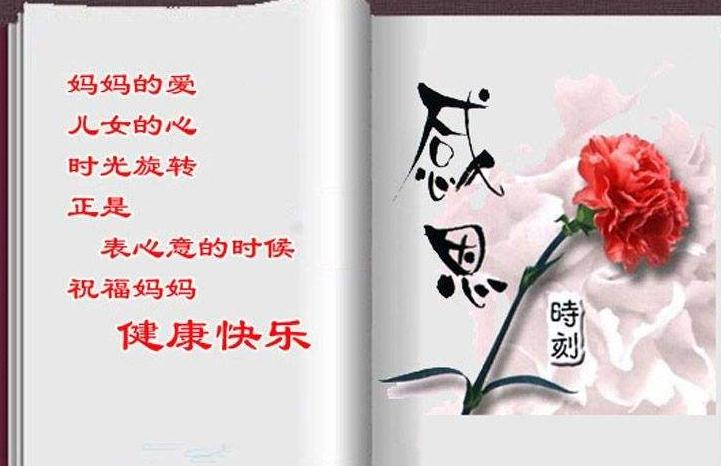 妈妈的爱
儿女的心
时光旋转
正是
表心意的时候
祝福妈妈
健康快乐
感恩
時刻